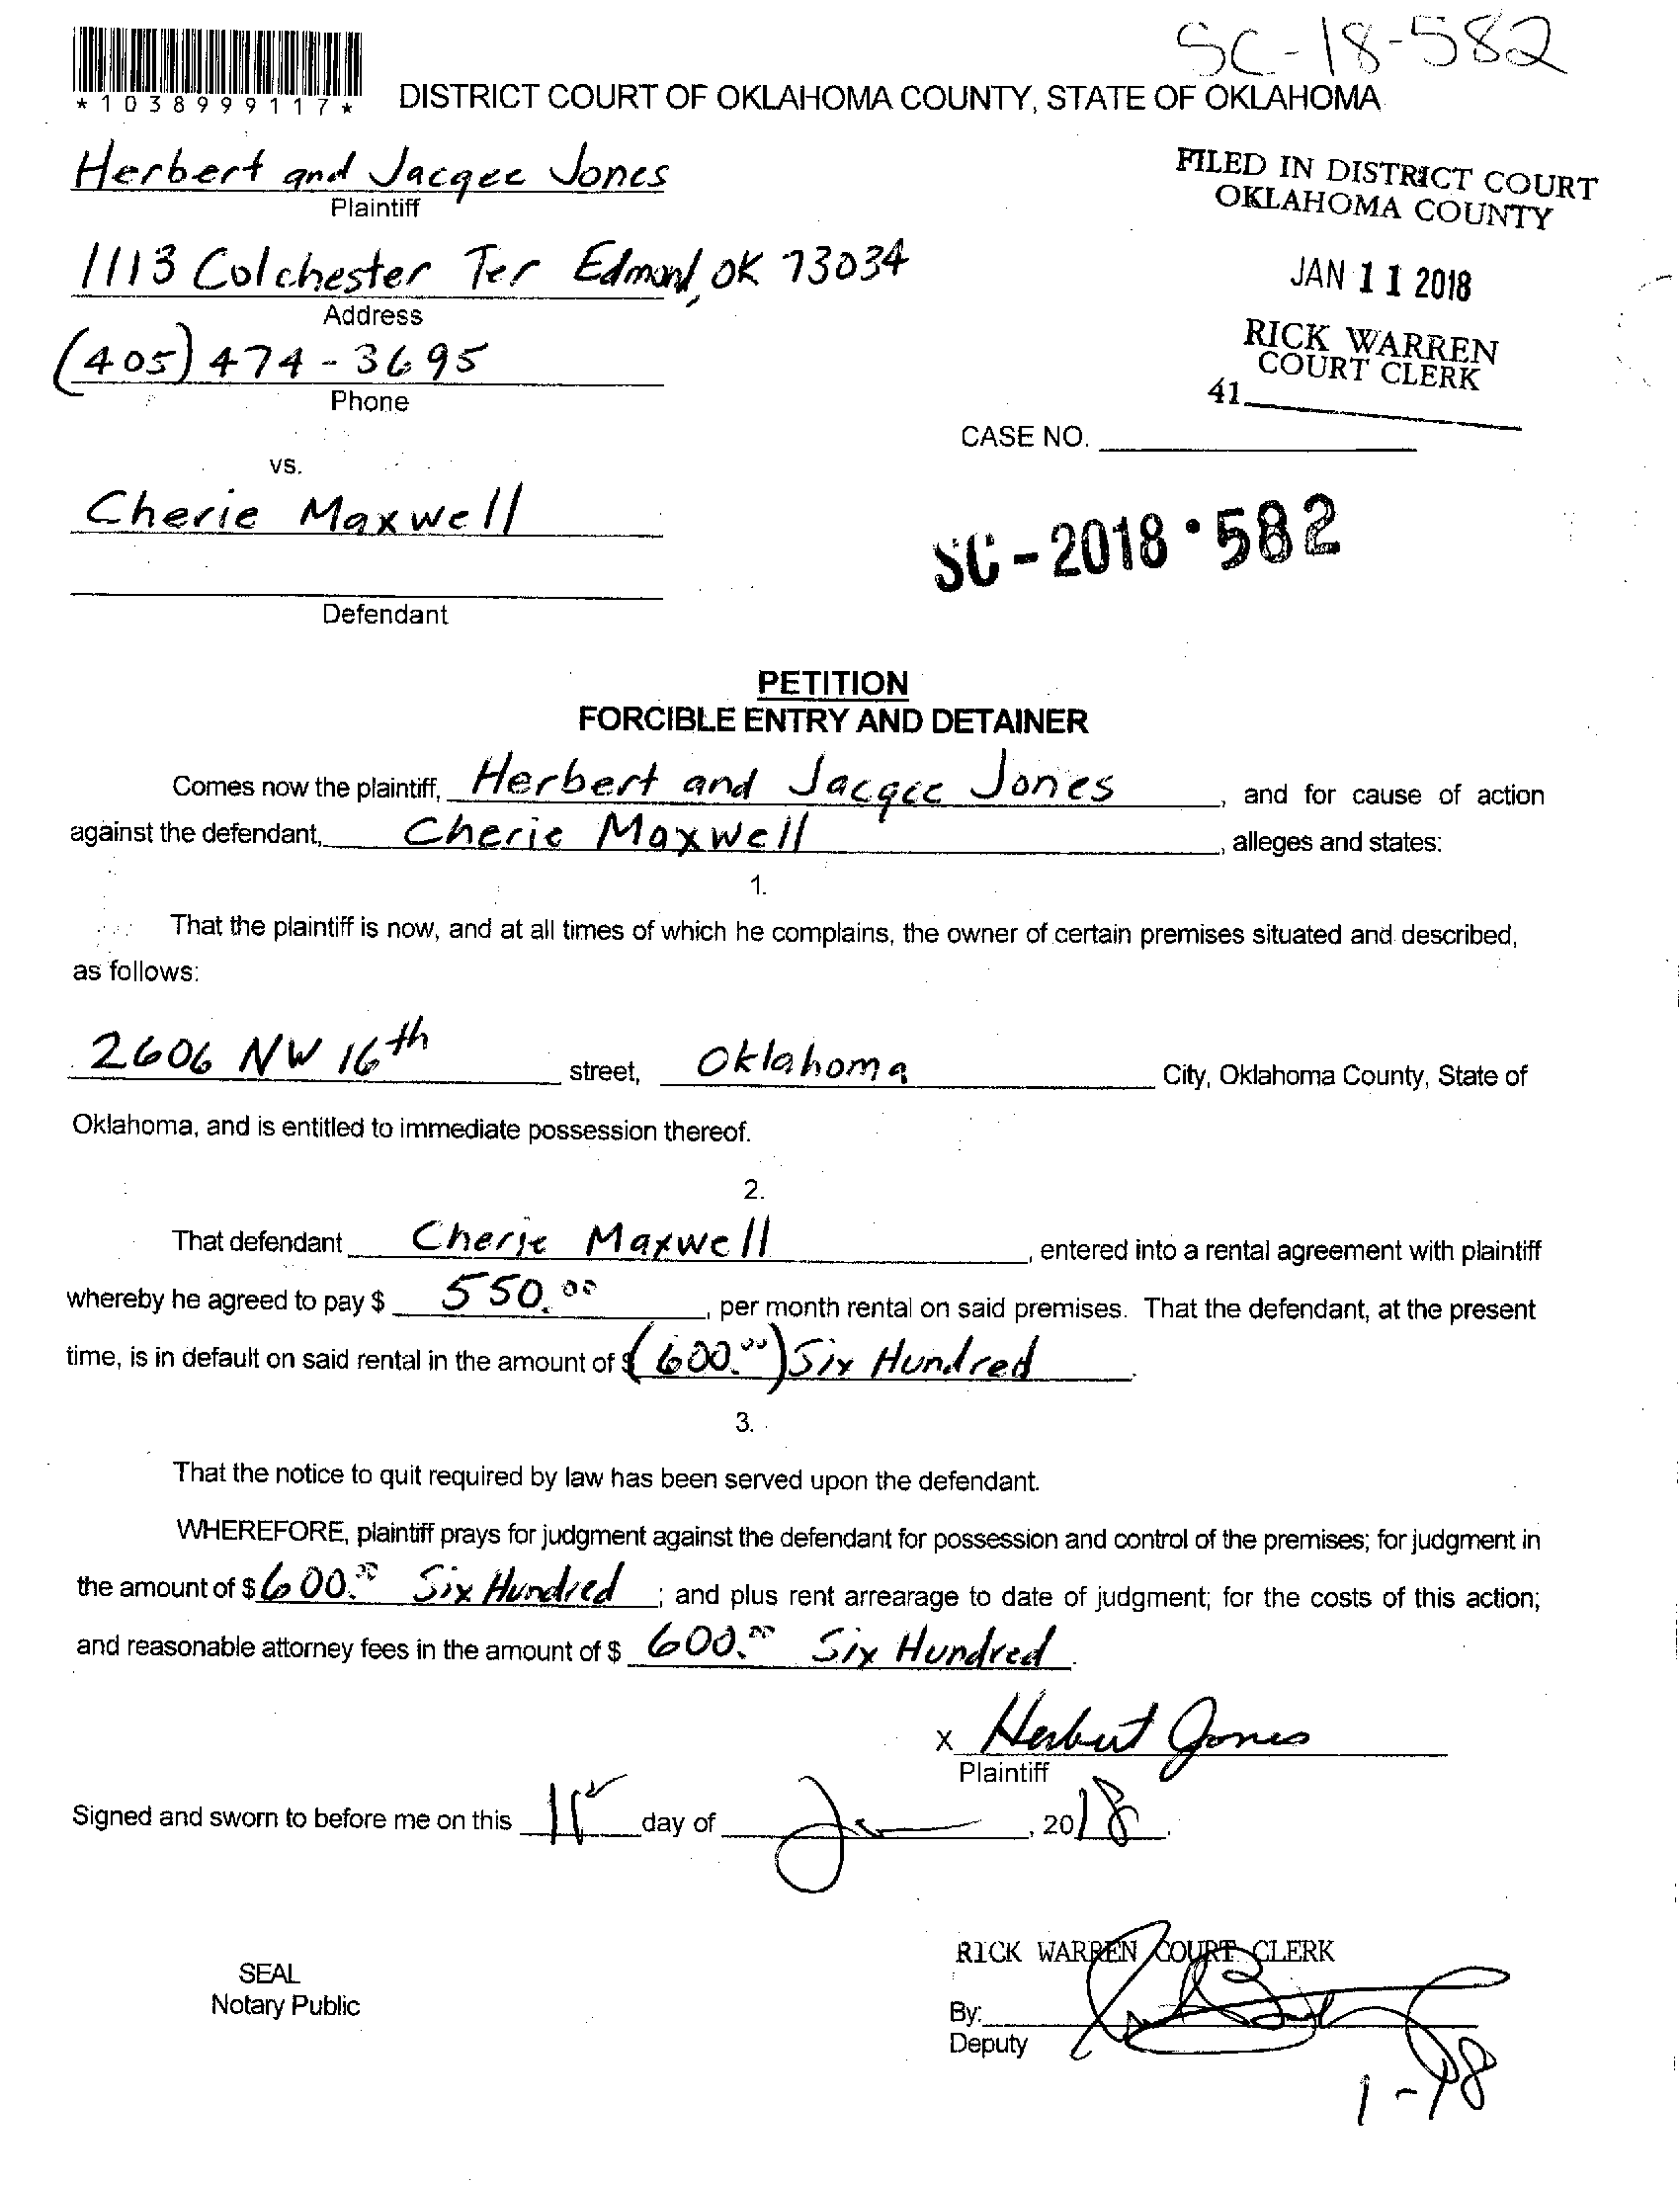 SC-18-582
*1038999117*
DISTRICT COURT OF OKLAHOMA COUNTY, STATE OF OKLAHOMA
Herbert and Jacqee Jones
Plaintiff
FILED IN DISTRICT COURT
OKLAHOMA COUNTY
1113 Colchester Ter Edmond, OK 73034
Address
JAN 11 2018
(405) 474-3695
Phone
RICK WARREN
COURT CLERK
41
CASE NO.
vs.
Cherie Maxwell
SC-2018·582
Defendant
PETITION
FORCIBLE ENTRY AND DETAINER
Comes now the plaintiff, Herbert and Jacqee Jones, and for cause of action
against the defendant, Cherie Maxwell, alleges and states:
1.
That the plaintiff is now, and at all times of which he complains, the owner of certain premises situated and described,
as follows:
2606 NW 16th street, Oklahoma City, Oklahoma County, State of
Oklahoma, and is entitled to immediate possession thereof.
2.
That defendant Cherie Maxwell, entered into a rental agreement with plaintiff
whereby he agreed to pay $ 550.00, per month rental on said premises. That the defendant, at the present
time, is in default on said rental in the amount of $ (600.00) Six Hundred.
3.
That the notice to quit required by law has been served upon the defendant.
WHEREFORE, plaintiff prays for judgment against the defendant for possession and control of the premises; for judgment in
the amount of $ 600.00 Six Hundred; and plus rent arrearage to date of judgment; for the costs of this action;
and reasonable attorney fees in the amount of $ 600.00 Six Hundred.
x Herbert Jones
Plaintiff
Signed and sworn to before me on this 11 day of Jan, 2018.
RICK WARREN COURT CLERK
SEAL
Notary Public
By:
Deputy
1-18